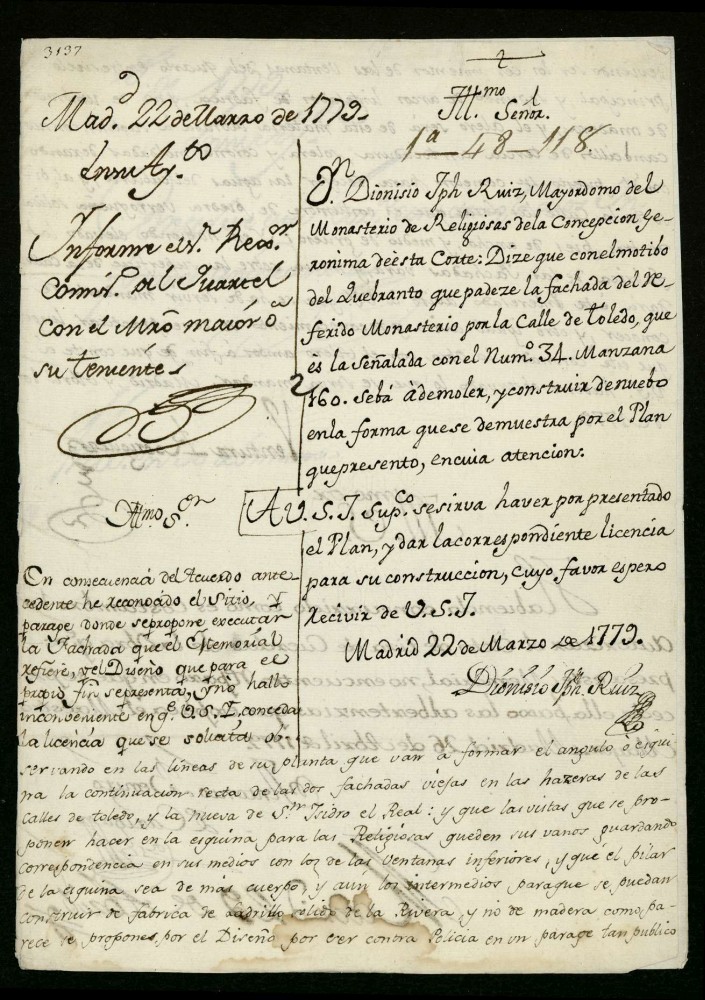 3137
Mad.d 22 de Marzo de 1779.
En su Ay.to
Informe el S.r Rexo.r
Comis.o del Quartel
con el Mro maior ô
su teniente
Ill.mo Señor.
1a—48—118.
D.n Dionisio Jph Ruiz, Mayordomo del
Monasterio de Religiosas dela Concepcion Ge-
ronima de ésta Corte: Dize que con el motibo
del Quebranto que padeze la fachada del Re-
ferido Monasterio por la Calle de toledo, que
és la señalada con el Num.o 34. Manzana
160. se bá à demoler, y construir de nuebo
en la forma que se demuestra por el Plan
que presento, en cuia atencion:
A V. S. I. Sup.co se sirva haver por presentado
el Plan, y dar la correspondiente licencia
para su construccion, cuyo favor espero
Recivir de V. S. I.
Madrid 22 de Marzo de 1779.
Dionisio Jph. Ruiz
Illmo. S.or
En consecuencia del Acuerdo ante-
cedente he reconocido el Sitio, y
parage donde se propone executar
la Fachada que el Memorial
refiere, y el Diseño que para el
propio fin se representa, y no hallo
inconveniente en q.e V. S. I. conceda
la licencia que se solicita ob-
servando en las lineas de su planta que van a formar el angulo ò esqui-
na la continuacion recta de las dos fachadas viejas en las hazeras de las
Calles de toledo, y la nueva de S.n Isidro el Real: y que las vistas que se pro-
ponen hacer en la esquina para las Religiosas queden sus vanos guardando
correspondencia en sus medios con los de las Ventanas inferiores, y que el pilar
de la esquina sea de más cuerpo, y aun los intermedios para que se puedan
construir de fabrica de ladrillo solido de la Rivera, y no de madera como pa-
rece se propones por el Diseño por ser contra Policia en un parage tan publico